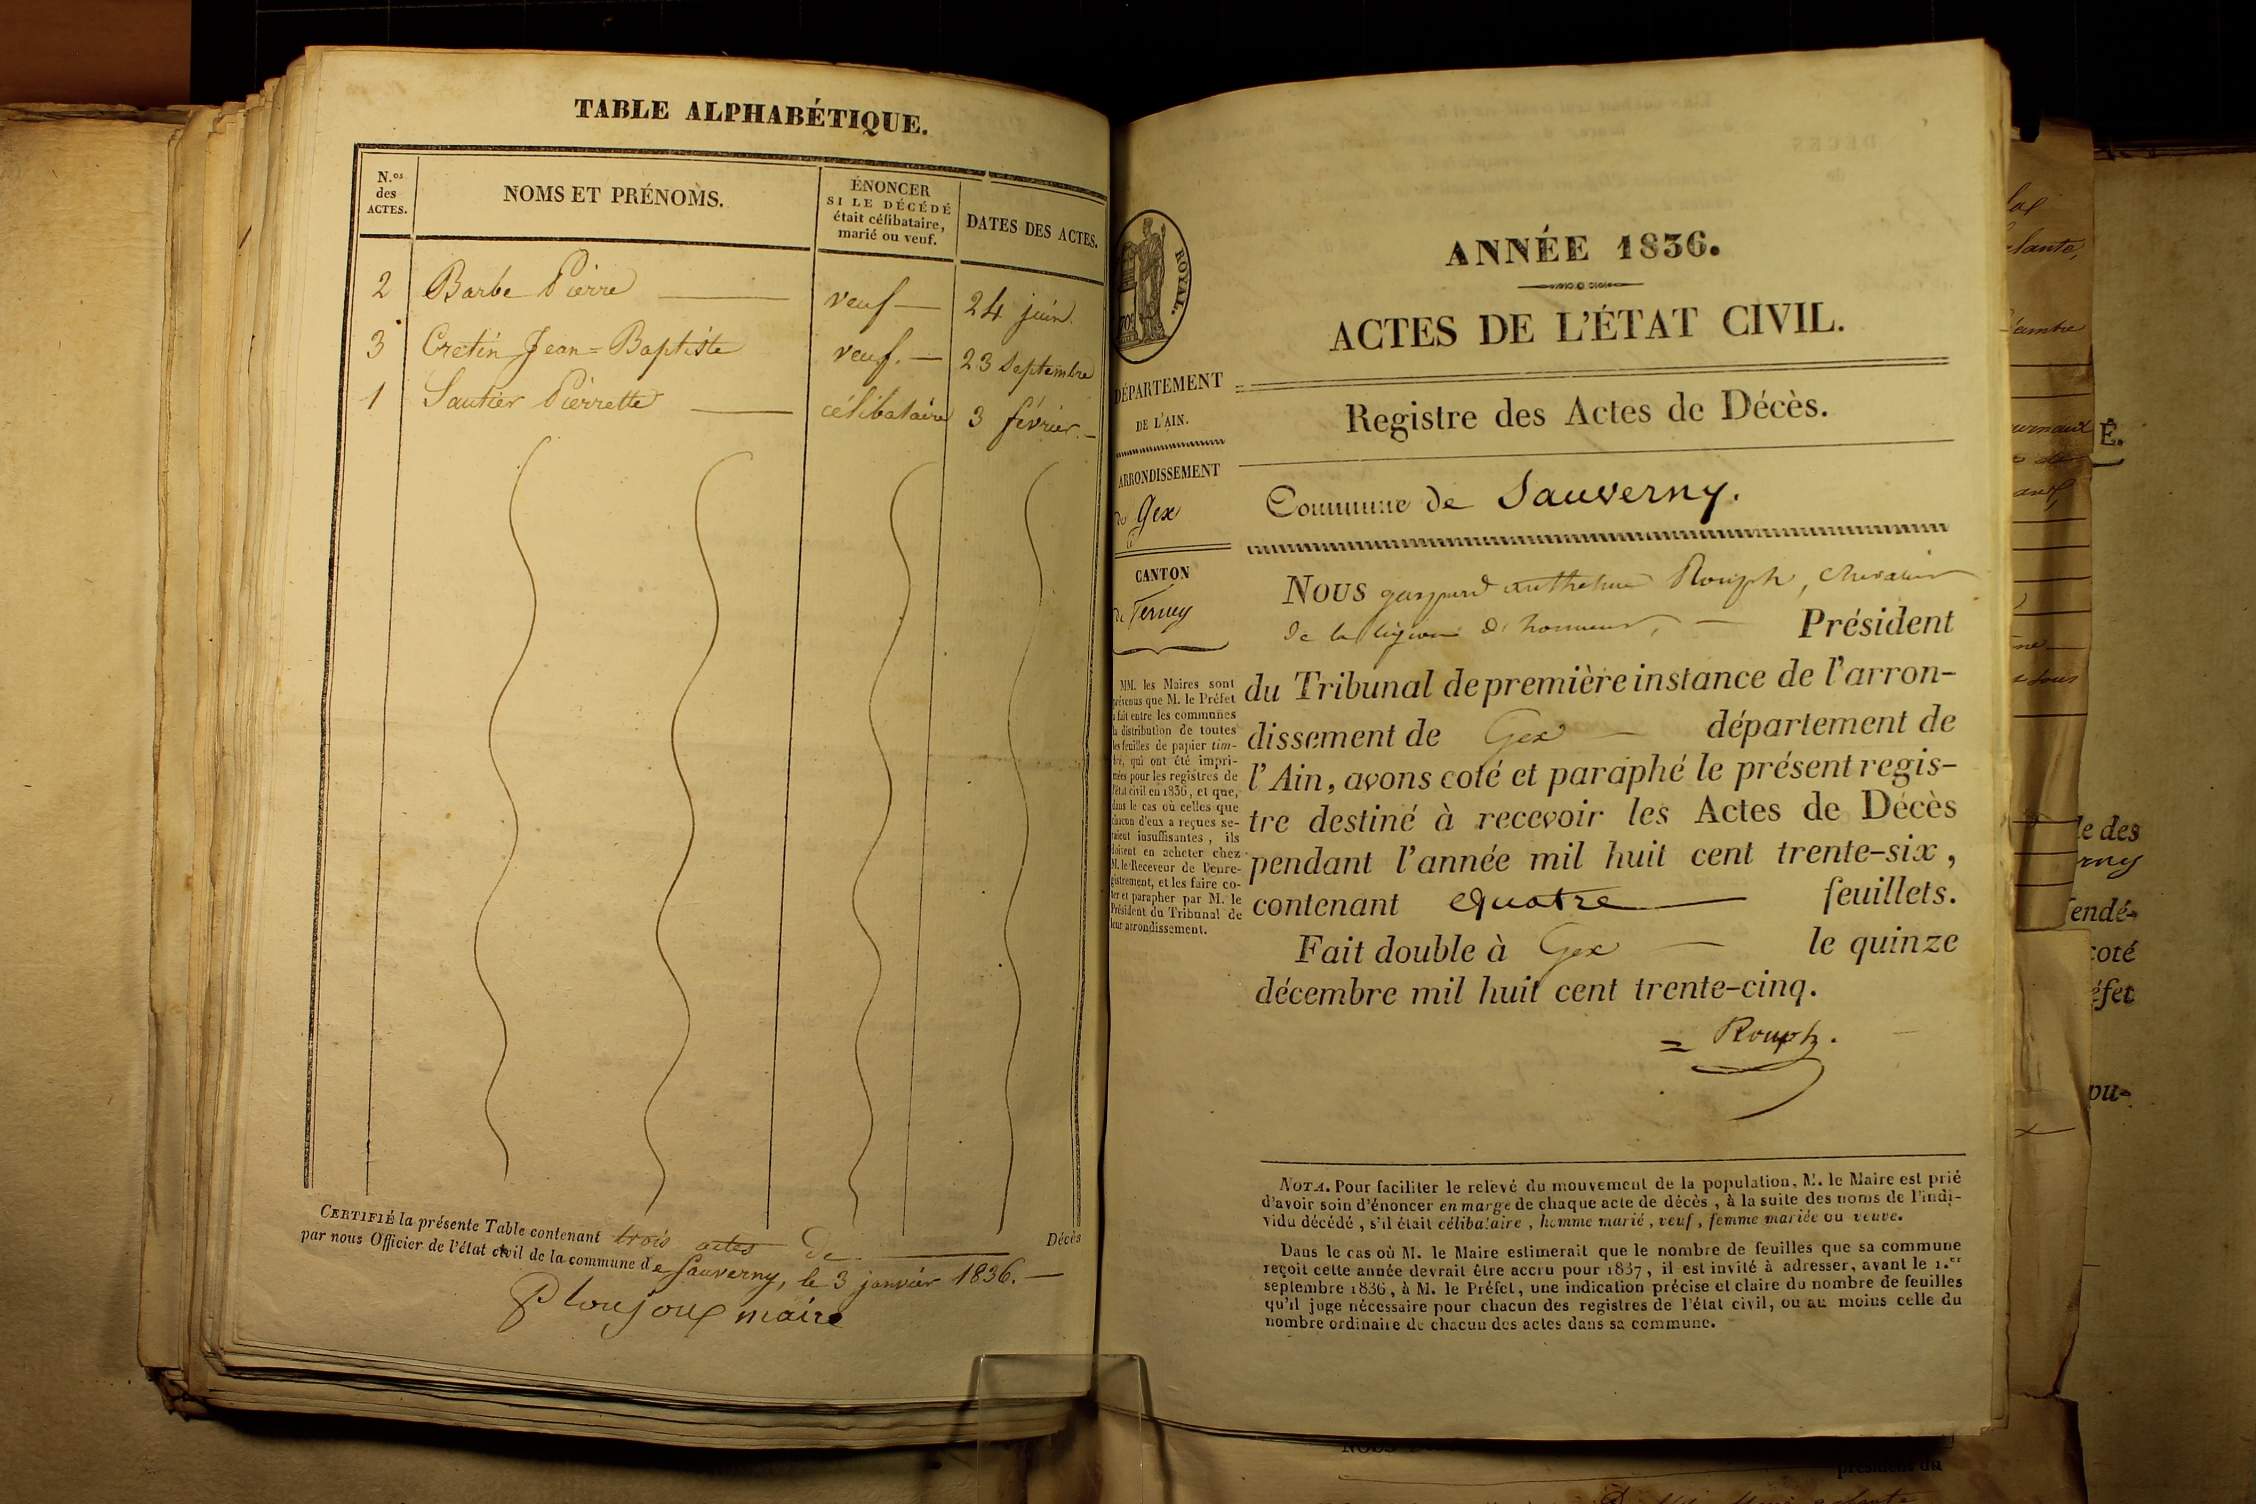 TABLE ALPHABÉTIQUE.
N.os des ACTES.
NOMS ET PRÉNOMS.
ÉNONCER
SI LE DÉCÉDÉ
était célibataire,
marié ou veuf.
DATES DES ACTES.
2 Barbe Pierre veuf 24 juin.
3 Cretin Jean=Baptiste veuf. 23 septembre
1 Sautier Pierrette célibataire 3 février.
CERTIFIÉ la présente Table contenant trois actes de Décès
par nous Officier de l'état civil de la commune de Sauverny, le 3 janvier 1836.
Ploujoux maire
ROYAL.
DÉPARTEMENT
DE L'AIN.
ARRONDISSEMENT
de Gex
CANTON
de Ferney
MM. les Maires sont
prévenus que M. le Préfet
a fait entre les communes
la distribution de toutes
les feuilles de papier tim-
bré, qui ont été impri-
mées pour les registres de
l'état civil en 1836, et que,
dans le cas où celles que
chacun d'eux a reçues se-
raient insuffisantes, ils
doivent en acheter chez
M. le Receveur de l'enre-
gistrement, et les faire co-
ter et parapher par M. le
Président du Tribunal de
leur arrondissement.
ANNÉE 1836.
ACTES DE L'ÉTAT CIVIL.
Registre des Actes de Décès.
Commune de Sauverny.
NOUS gaspard anthelme Rouph, chevalier
de la légion d'honneur, Président
du Tribunal de première instance de l'arron-
dissement de Gex département de
l'Ain, avons coté et paraphé le présent regis-
tre destiné à recevoir les Actes de Décès
pendant l'année mil huit cent trente-six,
contenant quatre feuillets.
Fait double à Gex le quinze
décembre mil huit cent trente-cinq.
= Rouph.
NOTA. Pour faciliter le relevé du mouvement de la population, M. le Maire est prié
d'avoir soin d'énoncer en marge de chaque acte de décès, à la suite des noms de l'indi-
vidu décédé, s'il était célibataire, homme marié, veuf, femme mariée ou veuve.
Dans le cas où M. le Maire estimerait que le nombre de feuilles que sa commune
reçoit cette année devrait être accru pour 1837, il est invité à adresser, avant le 1.er
septembre 1836, à M. le Préfet, une indication précise et claire du nombre de feuilles
qu'il juge nécessaire pour chacun des registres de l'état civil, ou au moins celle du
nombre ordinaire de chacun des actes dans sa commune.
É.
le des
rny
endé-
coté
éfet
ou-
président du